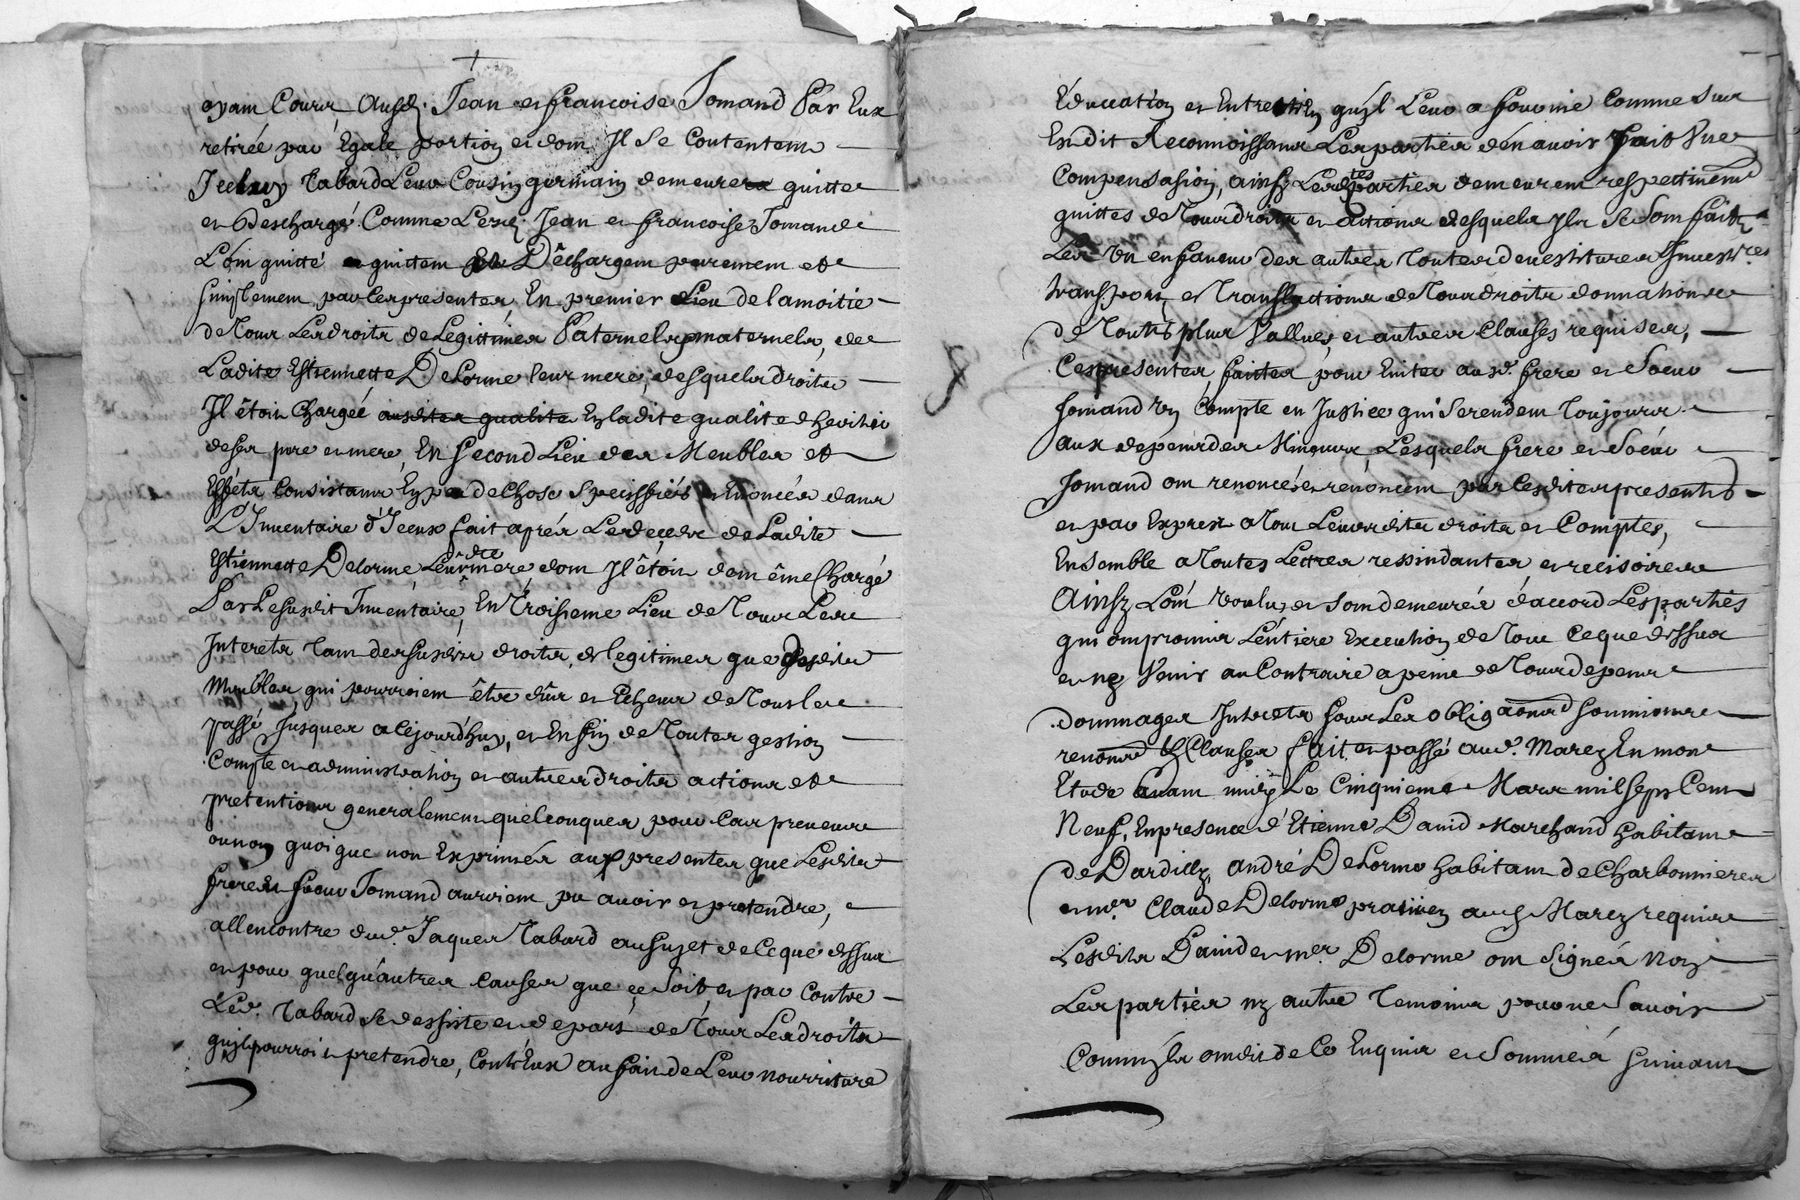 ayant Cours, Ausd. Jean et francoise Jomand Par Eux
retirée par Egale portion et dont Il Se Contentent
Jceluy Tabard Leur Cousin germain demeurera quitte
et Deschargé Comme Lesd. Jean et francoise Jomand
L'ont quitté et quittent et Dêchargent purement et
simplement par ces presentes, En premier Lieu de la moitie
de Tous Les droits de Legittimes Paternels, maternels, de
Ladite Estiennette Delorme leur mere, desquels droits
Il êtoit Chargée ausdites qualite En ladite qualite d'heritier
de ses pere et mere, En Second Lieu des Meubles et
Effets Consistants En peu de Chose Speciffiés et Enoncés dans
L'Inventaire d'Jceux fait aprés Le deceds de Ladite
Estiennette Delorme Leurdite mere, dont Il êtoit de même Chargé
Par Le susdit Inventaire, En Troisieme Lieu de Tous Les
Interets Tant des susdits droits, de legitimes que desdits
Meubles qui pourroient être dûs et Echeus de Tout le
passé Jusques a Cejourd'huy, et Enfin de Toutes gestion
Compte et administration et autres droits actions et
pretentions generalement quelconques pour Cas preveus
ou non quoi que non Exprimés aux presentes que Lesdits
frere et soeur Jomand auroient pu avoir et pretendre,
allencontre dud. Jaques Tabard au Sujet de Ce que dessus
et pour quelqu'autres Causes que ce Soit et par Contre
Led. Tabard Se dessiste et depart de Tous Les droits
qu'il pourroit pretendre, Contr'Eux au fait de Leur nourriture
Education et Entretien qu'il Leur a fournie Comme Sus
Est dit Reconnoissant Les parties d'en avoir fait Une
Compensasion, ainsy Lesdites parties demeurent respectivemt
quittes de Tous droits et actions desquels Ils Se Sont faits
Les Un en faveur des autres Toutes devestitures Investres
transport, et Translactions de Tous droits donnations
de Touts plus Vallues et autres Clauses requises,
Ces presentes faittes pour Eviter ausd. frere et Soeur
Jomand Un Compte en Justice qui Se rendent Toujours
aux depens des Mineurs, Lesquels frere et Soeur
Jomand ont renoncé et renoncent par Cesdites presentes
et par Exprest a Tous Leursdits droits et Comptes,
Ensemble a Toutes Lettres ressindantes et recisoires
Ainsy L'ont Voulu, et Sont demeurés d'accord Les parties
qui ont promis L'entiere Execution de Tout Ce que dessus
et ny Venir au Contraire a peine de Tous depens
dommages Interets sous Les obligaonsd soumions
renond et Clauses fait et passé aud. Marcy En mon
Etude avant midy Le Cinquieme Mars mil Sept Cent
Neuf, En presence d'Etienne David Marchand habitant
de Dardilly, andré Delorme habitant de Charbonnieres
et mer Claude Delorme praticien aud. Marcy requis
Lesdits David et mer Delorme ont Signés Non
Les parties ny autre Temoins pour ne Savoir
Comm'ils ont dit de Ce Enquis et Sommés Suivant